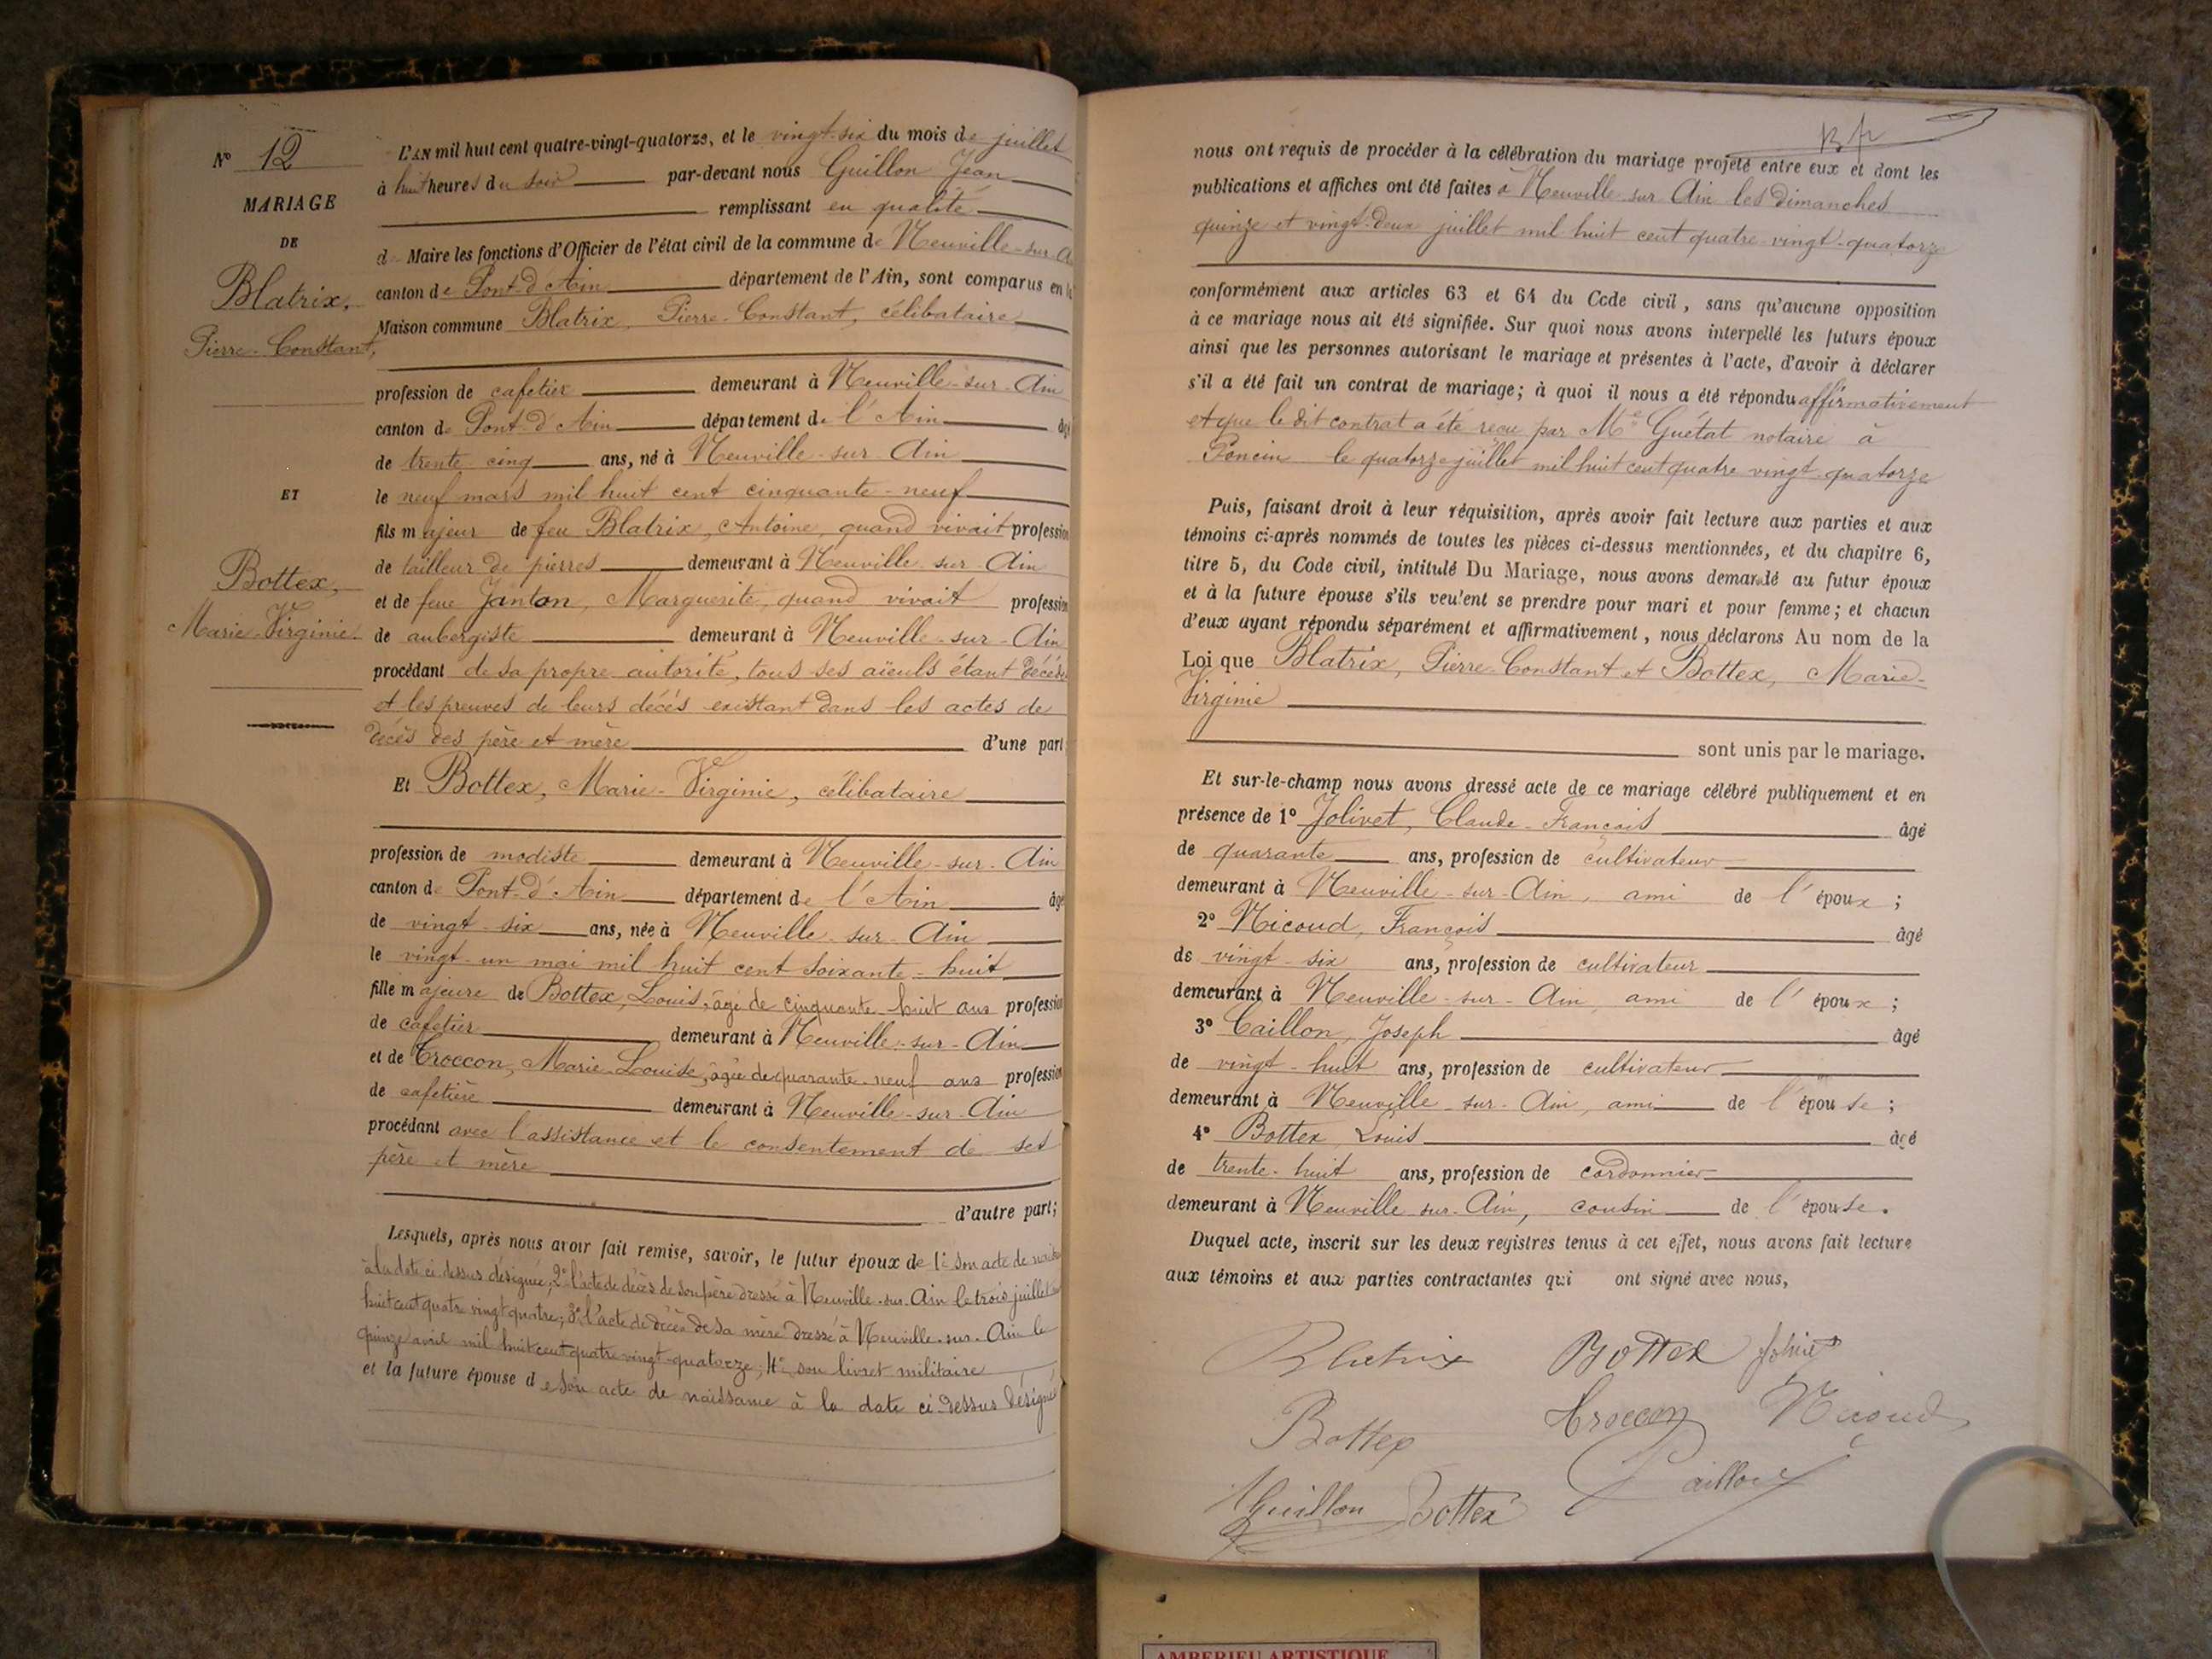 Nº 12
MARIAGE
DE
Blatrix,
Pierre-Constant,
ET
Bottex,
Marie-Virginie
L'AN mil huit cent quatre-vingt-quatorze, et le vingt-six du mois de juillet
à huit heures du soir par-devant nous Guillon Jean
remplissant en qualité
de Maire les fonctions d'Officier de l'état civil de la commune de Neuville-sur-A
canton de Pont-d'Ain département de l'Ain, sont comparus en la
Maison commune Blatrix, Pierre-Constant, célibataire
profession de cafetier demeurant à Neuville-sur-Ain
canton de Pont-d'Ain département de l'Ain âgé
de trente-cinq ans, né à Neuville-sur-Ain
le neuf mars mil huit cent cinquante-neuf
fils majeur de feu Blatrix, Antoine, quand vivait profession
de tailleur de pierres demeurant à Neuville-sur-Ain
et de feue Janton, Marguerite, quand vivait profession
de aubergiste demeurant à Neuville-sur-Ain
procédant de sa propre autorité, tous ses aïeuls étant décédés
et les preuves de leurs décès existant dans les actes de
décès des père et mère d'une part
Et Bottex, Marie-Virginie, célibataire
profession de modiste demeurant à Neuville-sur-Ain
canton de Pont-d'Ain département de l'Ain âgé
de vingt-six ans, née à Neuville-sur-Ain
le vingt-un mai mil huit cent soixante-huit
fille majeure de Bottex, Louis, âgé de cinquante-huit ans profession
de cafetier demeurant à Neuville-sur-Ain
et de Croccon, Marie-Louise, âgée de quarante-neuf ans profession
de cafetière demeurant à Neuville-sur-Ain
procédant avec l'assistance et le consentement de ses
père et mère
d'autre part;
Lesquels, après nous avoir fait remise, savoir, le futur époux de 1º son acte de
à la date ci-dessus désignée, 2º l'acte de décès de son père dressé à Neuville-sur-Ain le trois juillet
huit cent quatre vingt quatre; 3º l'acte de décès de sa mère dressé à Neuville-sur-Ain le
quinze avril mil huit cent quatre vingt-quatorze; 4º son livret militaire
et la future épouse de son acte de naissance à la date ci-dessus désigné
nous ont requis de procéder à la célébration du mariage projeté entre eux et dont les
publications et affiches ont été faites à Neuville-sur-Ain les dimanches
quinze et vingt-deux juillet mil huit cent quatre-vingt-quatorze
conformément aux articles 63 et 64 du Code civil, sans qu'aucune opposition
à ce mariage nous ait été signifiée. Sur quoi nous avons interpellé les futurs époux
ainsi que les personnes autorisant le mariage et présentes à l'acte, d'avoir à déclarer
s'il a été fait un contrat de mariage; à quoi il nous a été répondu affirmativement
et que le dit contrat a été reçu par Me Guétat notaire à
Poncin le quatorze juillet mil huit cent quatre vingt-quatorze
Puis, faisant droit à leur réquisition, après avoir fait lecture aux parties et aux
témoins ci-après nommés de toutes les pièces ci-dessus mentionnées, et du chapitre 6,
titre 5, du Code civil, intitulé Du Mariage, nous avons demandé au futur époux
et à la future épouse s'ils veulent se prendre pour mari et pour femme; et chacun
d'eux ayant répondu séparément et affirmativement, nous déclarons Au nom de la
Loi que Blatrix, Pierre-Constant et Bottex, Marie-
Virginie
sont unis par le mariage.
Et sur-le-champ nous avons dressé acte de ce mariage célébré publiquement et en
présence de 1º Jolivet, Claude-François âgé
de quarante ans, profession de cultivateur
demeurant à Neuville-sur-Ain, ami de l'époux;
2º Nicoud, François âgé
de vingt-six ans, profession de cultivateur
demeurant à Neuville-sur-Ain, ami de l'époux;
3º Caillon, Joseph âgé
de vingt-huit ans, profession de cultivateur
demeurant à Neuville-sur-Ain, ami de l'épouse;
4º Bottex Louis âgé
de trente-huit ans, profession de cordonnier
demeurant à Neuville-sur-Ain, cousin de l'épouse.
Duquel acte, inscrit sur les deux registres tenus à cet effet, nous avons fait lecture
aux témoins et aux parties contractantes qui ont signé avec nous,
Blatrix Bottex Jolivet
Bottex Croccon Nicoud
Guillon Bottex Caillon
AMBERIEU ARTISTIQUE